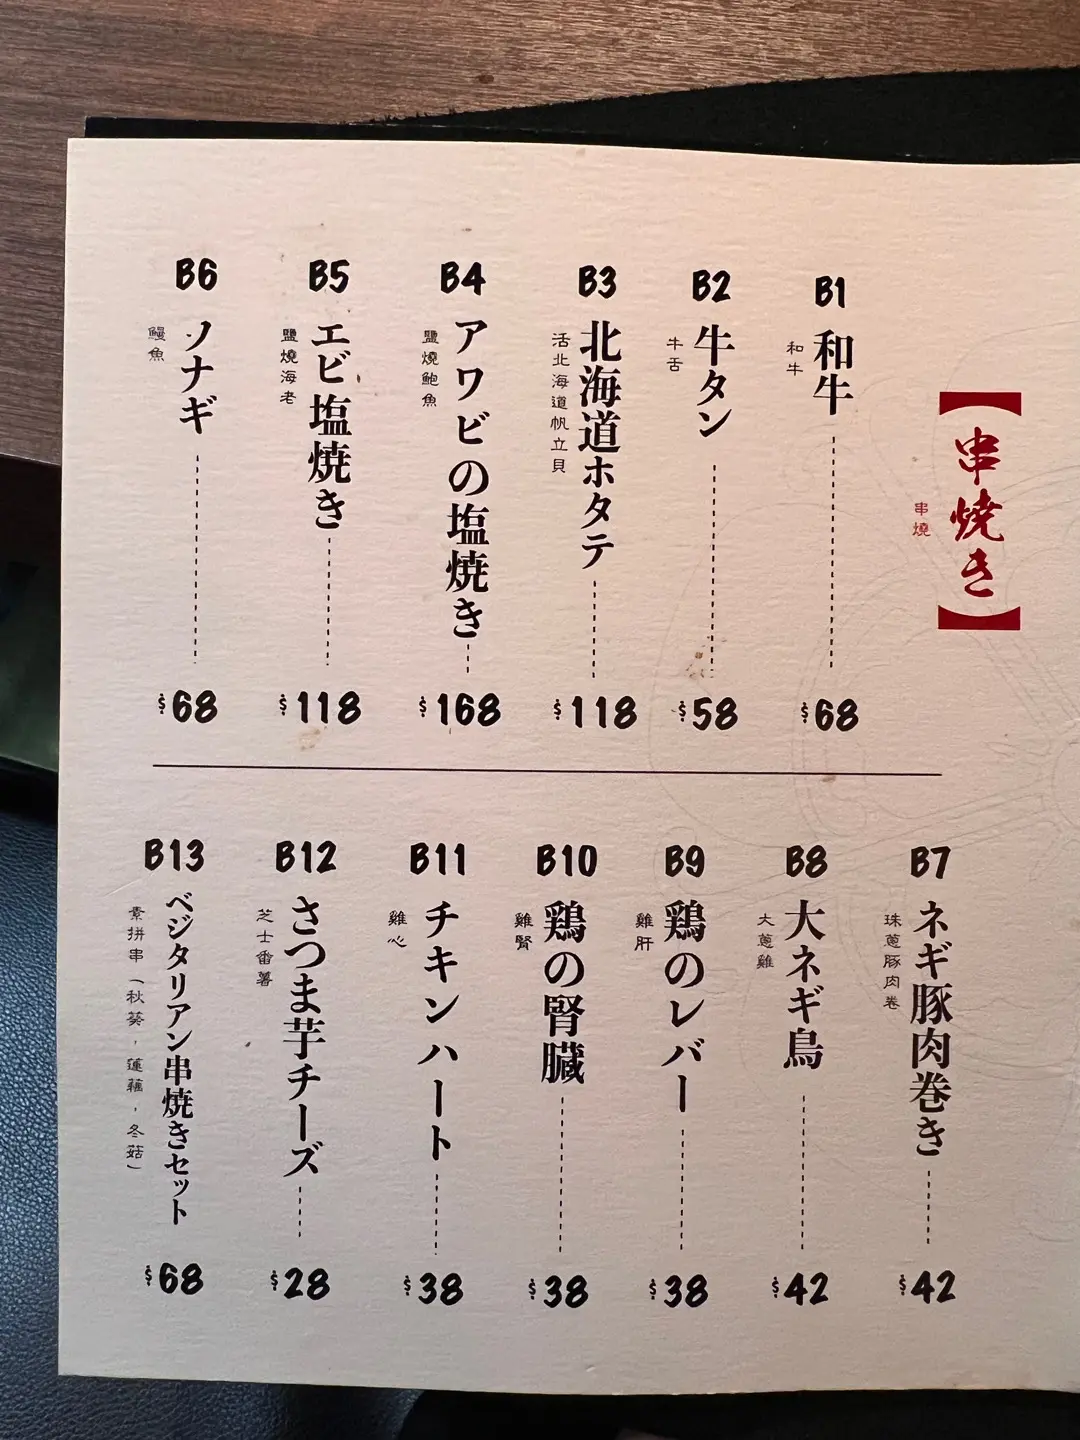 【串焼き】
串燒
B1
和牛
和牛
$68
B2
牛タン
牛舌
$58
B3
北海道ホタテ
活北海道帆立貝
$118
B4
アワビの塩焼き
鹽燒鮑魚
$168
B5
エビ塩焼き
鹽燒海老
$118
B6
ソナギ
鰻魚
$68
B7
ネギ豚肉巻き
珠蔥豚肉卷
$42
B8
大ネギ鳥
大蔥雞
$42
B9
鶏のレバー
雞肝
$38
B10
鶏の腎臓
雞腎
$38
B11
チキンハート
雞心
$38
B12
さつま芋チーズ
芝士番薯
$28
B13
ベジタリアン串焼きセット
素拼串（秋葵，蓮藕，冬菇）
$68